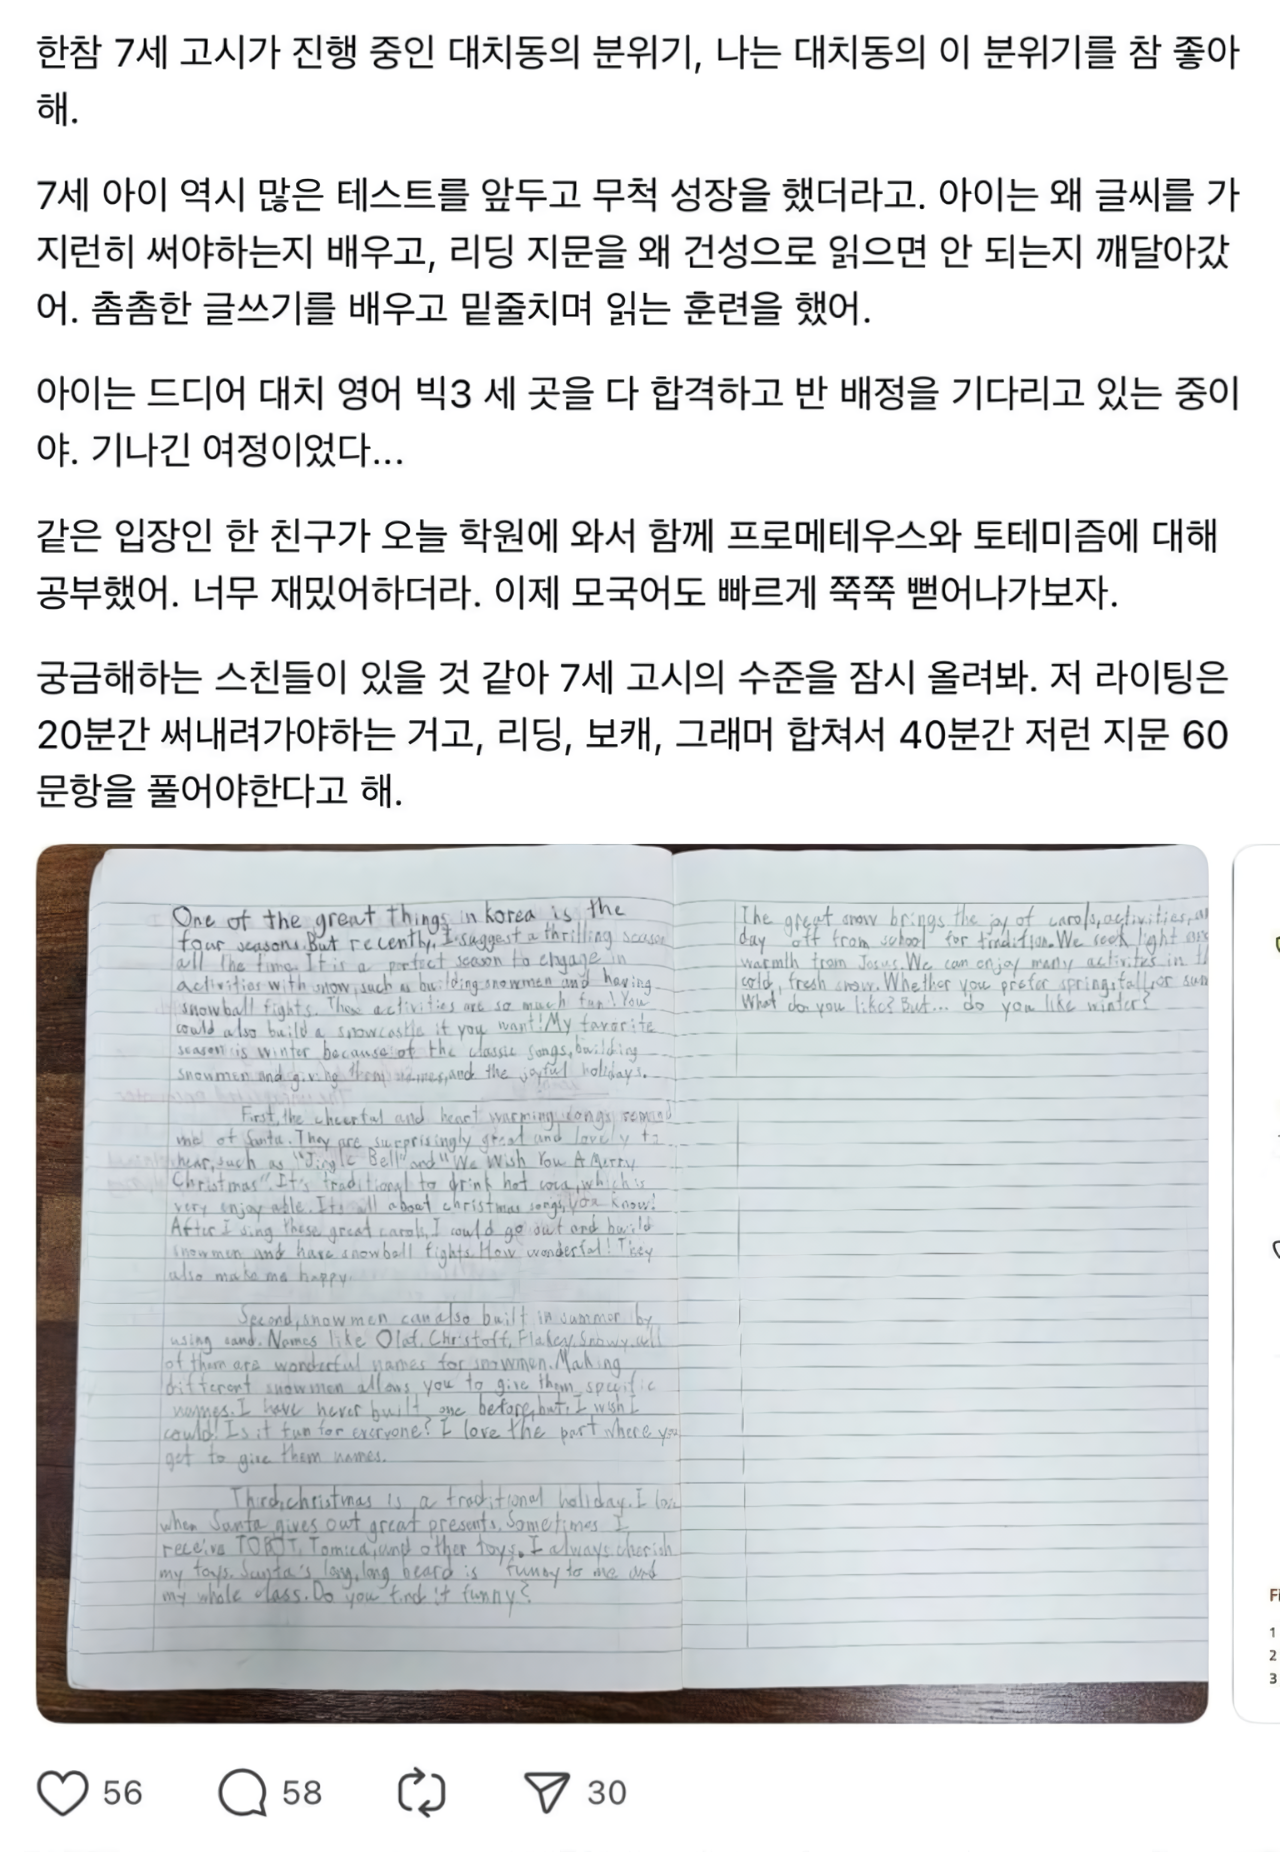 한참 7세 고시가 진행 중인 대치동의 분위기, 나는 대치동의 이 분위기를 참 좋아
해.
7세 아이 역시 많은 테스트를 앞두고 무척 성장을 했더라고. 아이는 왜 글씨를 가
지런히 써야하는지 배우고, 리딩 지문을 왜 건성으로 읽으면 안 되는지 깨달아갔
어. 촘촘한 글쓰기를 배우고 밑줄치며 읽는 훈련을 했어.
아이는 드디어 대치 영어 빅3 세 곳을 다 합격하고 반 배정을 기다리고 있는 중이
야. 기나긴 여정이었다...
같은 입장인 한 친구가 오늘 학원에 와서 함께 프로메테우스와 토테미즘에 대해
공부했어. 너무 재밌어하더라. 이제 모국어도 빠르게 쭉쭉 뻗어나가보자.
궁금해하는 스친들이 있을 것 같아 7세 고시의 수준을 잠시 올려봐. 저 라이팅은
20분간 써내려가야하는 거고, 리딩, 보캐, 그래머 합쳐서 40분간 저런 지문 60
문항을 풀어야한다고 해.
One of the great things in korea is the
four seasons. But recently, I suggest a thrilling season
all the time. It is a perfect season to engage in
activities with snow, such as building snowmen and having
snowball fights. These activities are so much fun! You
could also build a snowcastle if you want! My favorite
season is winter because of the classic songs, building
snowmen and giving them names, and the joyful holidays.
First, the cheerful and heart warming songs remind
me of Santa. They are surprisingly great and lovely to
hear, such as "Jingle Bell" and "We Wish You A Merry
Christmas". It's traditional to drink hot coca, which is
very enjoyable. It's all about christmas songs, you know!
After I sing these great carols, I could go out and build
snowmen and have snowball fights. How wonderful! They
also make me happy.
Second, snowmen can also built in summer by
using sand. Names like Olaf, Christoff, Flakey, Snowy, all
of them are wonderful names for snowmen. Making
different snowmen allows you to give them specific
names. I have never built one before, but I wish I
could! Is it fun for everyone? I love the part where you
get to give them names.
Third, christmas is a traditional holiday. I love
when Santa gives out great presents. Sometimes I
receive TOBOT, Tomica, and other toys. I always cherish
my toys. Santa's long, long beard is funny to me and
my whole class. Do you find it funny?
The great snow brings the joy of carols, activities, an
day off from school for tradition. We seek light and
warmth from Jesus. We can enjoy many activities in th
cold, fresh snow. Whether you prefer spring, fall, or sum
What do you like? But... do you like winter?
56
58
30
Fi
1
2
3